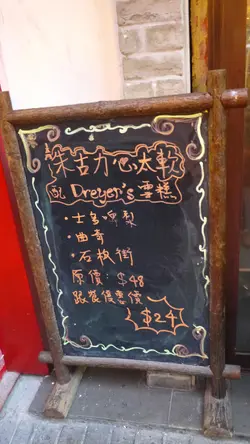 朱古力心太軟
配 Dreyer's 雪糕
·士多啤梨
·曲奇
·石板街
原價: $48
跟餐優惠價
$24